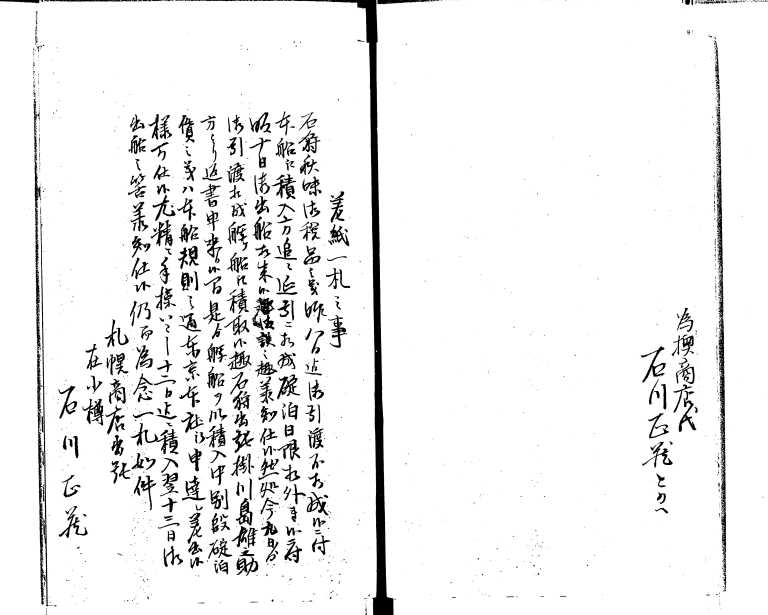 為換商店代
石川正蔵とのへ
差紙一札之事
石狩秋味御税品之義昨八日迄御引渡不相成候ニ付
本船江積入方追々延引ニ相成碇泊日限相外れ候ニ付
明十日御出船相成候趣承知仕候然処今九日
御引渡相成艀船江積取候趣石狩出張掛川島雄之助
方より返書申来候間是より艀船積入中別段碇泊
償之義ハ本船規則之通東京本社江申達し差出候
様可仕候尤精々手操いたし十二日迄ニ積入翌十三日御
出船之筈承知仕候仍而為念一札如件
札幌商店出張
在小樽
石川正蔵